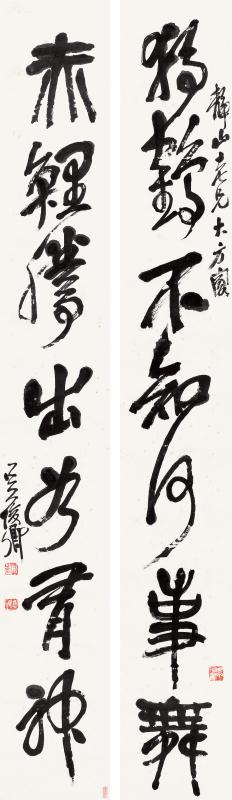 獨鶴不知何事舞
靜山老兄大方家
赤鯉騰出如有神
吳俊卿